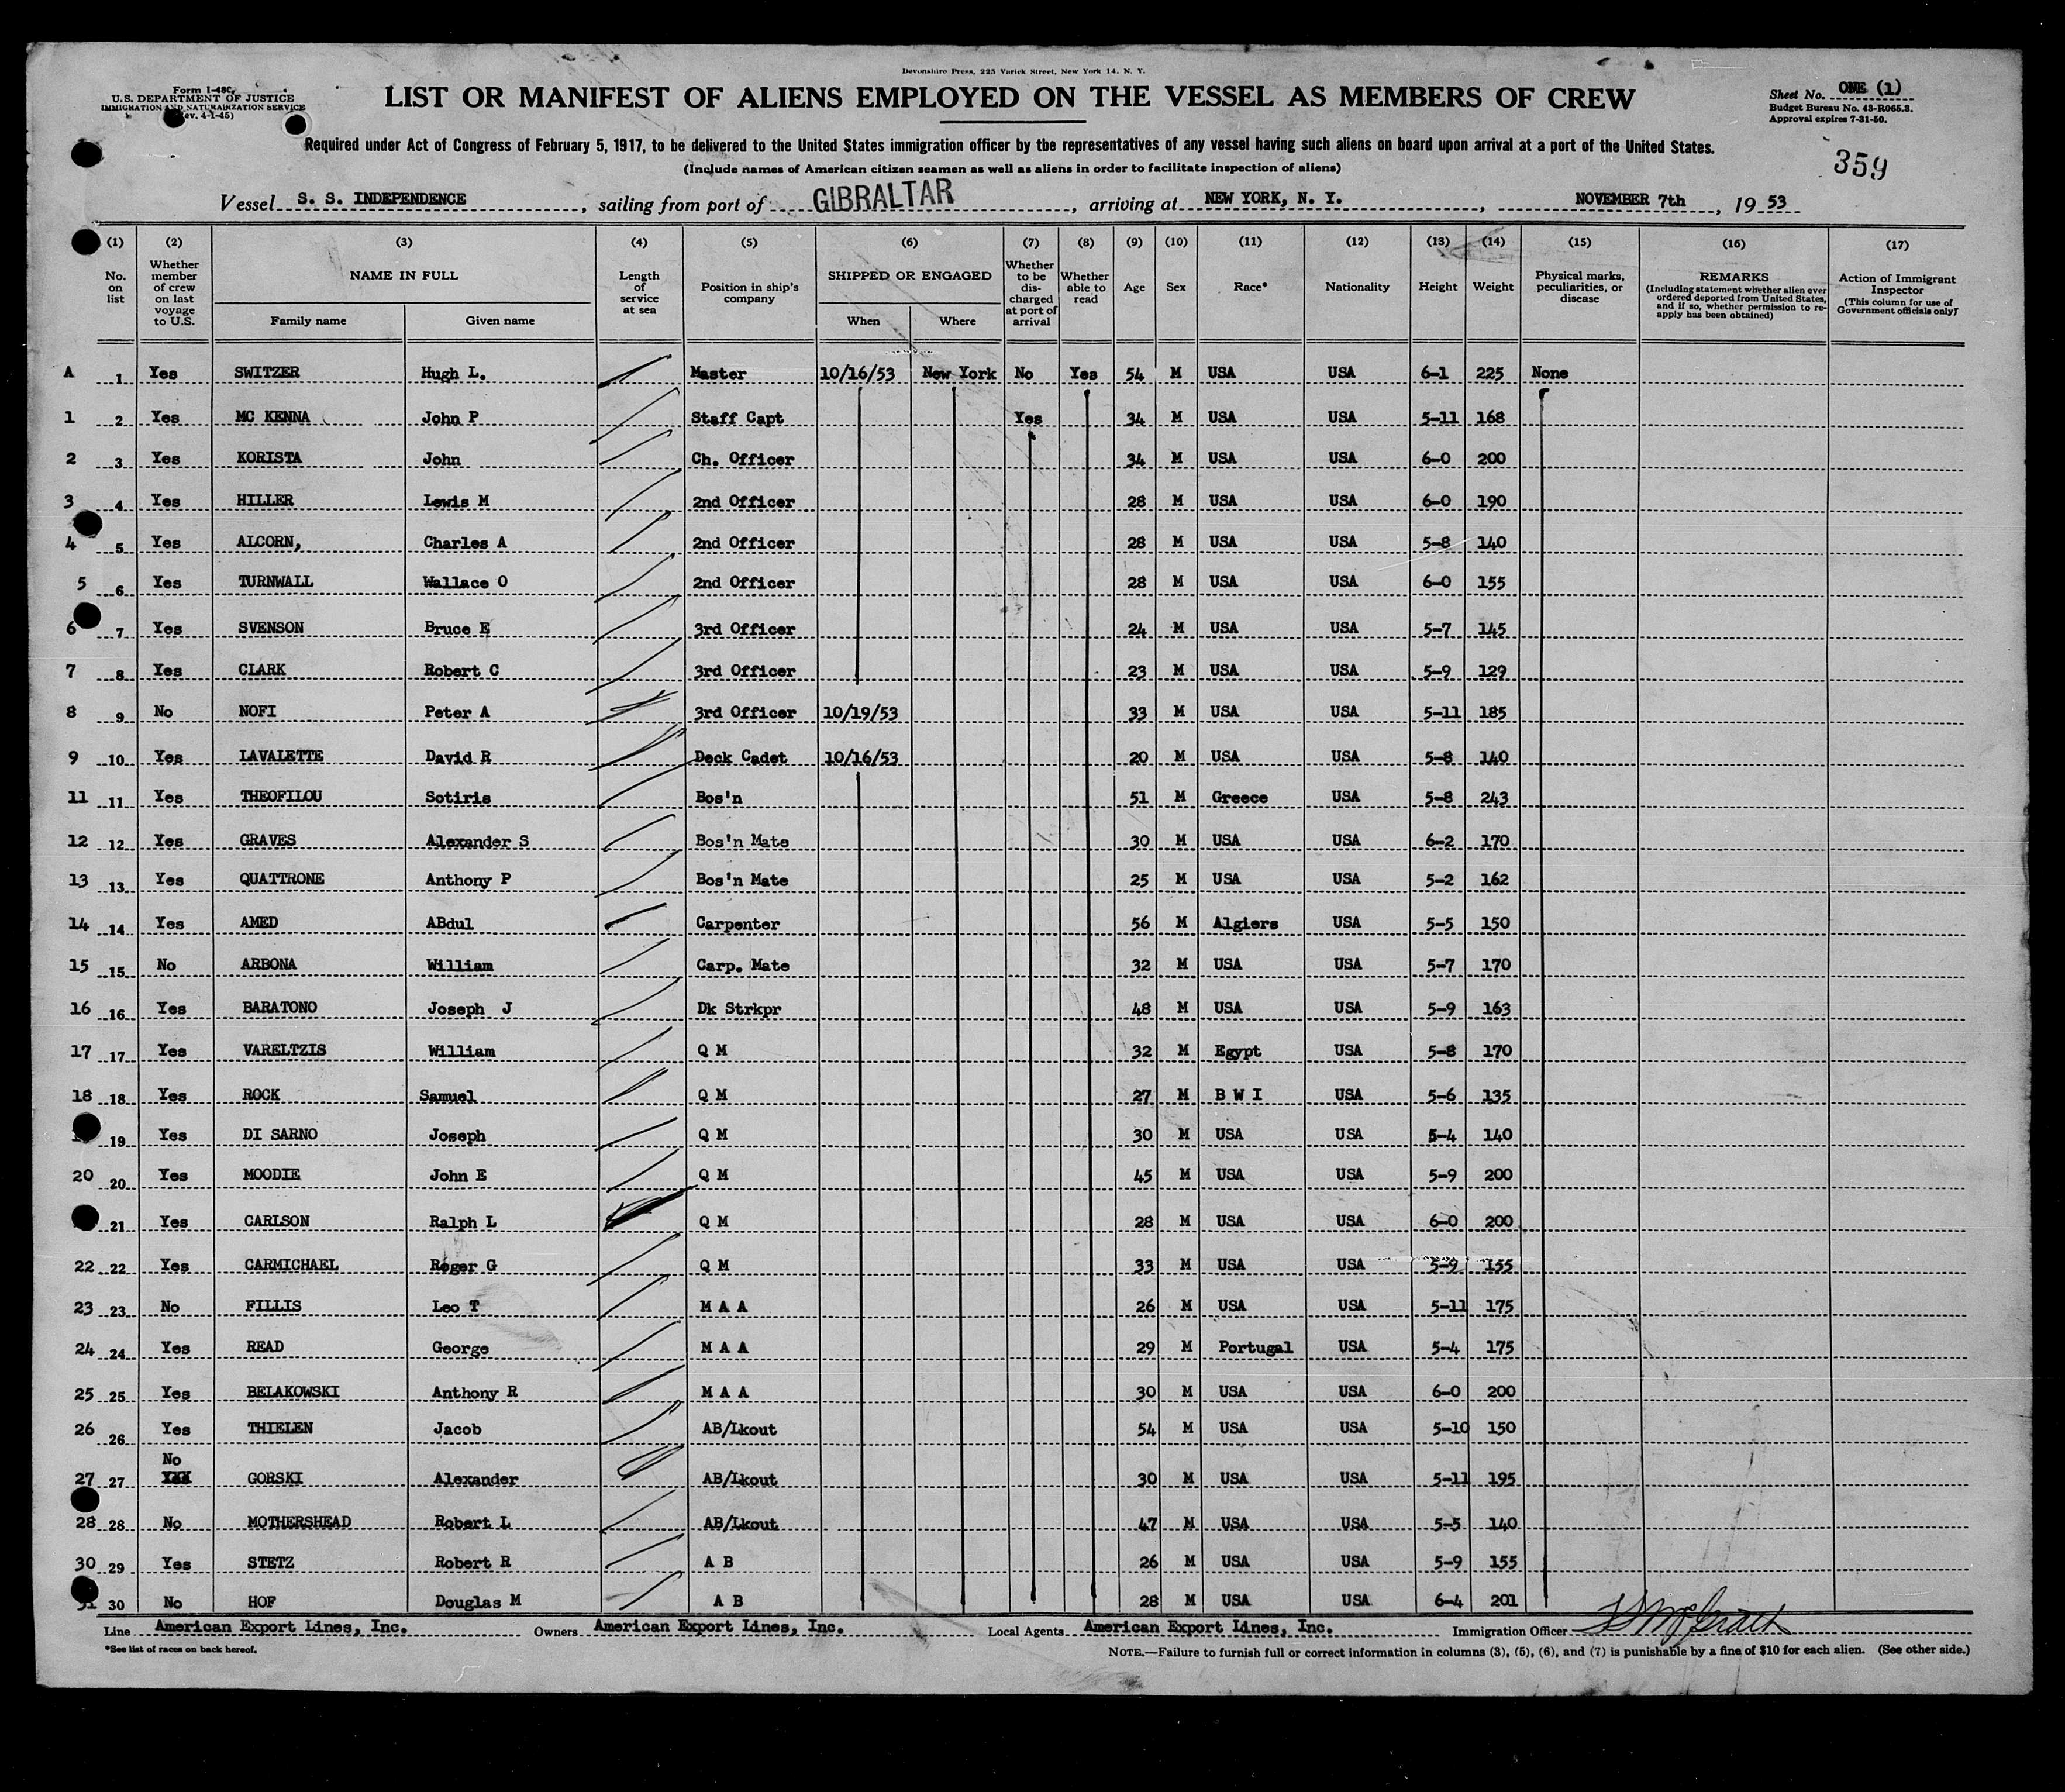 Devonshire Press, 225 Varick Street, New York 14, N. Y.
Form I-480
U. S. DEPARTMENT OF JUSTICE
IMMIGRATION AND NATURALIZATION SERVICE
(Rev. 4-1-45)
LIST OR MANIFEST OF ALIENS EMPLOYED ON THE VESSEL AS MEMBERS OF CREW
Sheet No. ONE (1)
Budget Bureau No. 43-R065.3.
Approval expires 7-31-50.
Required under Act of Congress of February 5, 1917, to be delivered to the United States immigration officer by the representatives of any vessel having such aliens on board upon arrival at a port of the United States.
(Include names of American citizen seamen as well as aliens in order to facilitate inspection of aliens)
359
Vessel S. S. INDEPENDENCE, sailing from port of GIBRALTAR, arriving at NEW YORK, N. Y., NOVEMBER 7th, 19 53
(1) (2) (3) (4) (5) (6) (7) (8) (9) (10) (11) (12) (13) (14) (15) (16) (17)
No. on list
Whether member of crew on last voyage to U.S.
NAME IN FULL
Family name
Given name
Length of service at sea
Position in ship's company
SHIPPED OR ENGAGED
When
Where
Whether to be discharged at port of arrival
Whether able to read
Age
Sex
Race*
Nationality
Height
Weight
Physical marks, peculiarities, or disease
REMARKS
(Including statement whether alien ever ordered deported from United States, and if so, whether permission to reapply has been obtained)
Action of Immigrant Inspector
(This column for use of Government officials only)
A 1 Yes SWITZER Hugh L. Master 10/16/53 New York No Yes 54 M USA USA 6-1 225 None
1 2 Yes MC KENNA John P Staff Capt Yes 34 M USA USA 5-11 168
2 3 Yes KORISTA John Ch. Officer 34 M USA USA 6-0 200
3 4 Yes HILLER Lewis M 2nd Officer 28 M USA USA 6-0 190
4 5 Yes ALCORN, Charles A 2nd Officer 28 M USA USA 5-8 140
5 6 Yes TURNWALL Wallace O 2nd Officer 28 M USA USA 6-0 155
6 7 Yes SVENSON Bruce E 3rd Officer 24 M USA USA 5-7 145
7 8 Yes CLARK Robert C 3rd Officer 23 M USA USA 5-9 129
8 9 No NOFI Peter A 3rd Officer 10/19/53 33 M USA USA 5-11 185
9 10 Yes LAVALETTE David R Deck Cadet 10/16/53 20 M USA USA 5-8 140
11 11 Yes THEOFILOU Sotiris Bos'n 51 M Greece USA 5-8 243
12 12 Yes GRAVES Alexander S Bos'n Mate 30 M USA USA 6-2 170
13 13 Yes QUATTRONE Anthony P Bos'n Mate 25 M USA USA 5-2 162
14 14 Yes AMED ABdul Carpenter 56 M Algiers USA 5-5 150
15 15 No ARBONA William Carp. Mate 32 M USA USA 5-7 170
16 16 Yes BARATONO Joseph J Dk Strkpr 48 M USA USA 5-9 163
17 17 Yes VARELTZIS William Q M 32 M Egypt USA 5-8 170
18 18 Yes ROCK Samuel Q M 27 M B W I USA 5-6 135
19 Yes DI SARNO Joseph Q M 30 M USA USA 5-4 140
20 20 Yes MOODIE John E Q M 45 M USA USA 5-9 200
21 Yes CARLSON Ralph L Q M 28 M USA USA 6-0 200
22 22 Yes CARMICHAEL Roger G Q M 33 M USA USA 5-9 155
23 23 No FILLIS Leo T M A A 26 M USA USA 5-11 175
24 24 Yes READ George M A A 29 M Portugal USA 5-4 175
25 25 Yes BELAKOWSKI Anthony R M A A 30 M USA USA 6-0 200
26 26 Yes THIELEN Jacob AB/Lkout 54 M USA USA 5-10 150
27 27 No GORSKI Alexander AB/Lkout 30 M USA USA 5-11 195
28 28 No MOTHERSHEAD Robert L AB/Lkout 47 M USA USA 5-5 140
30 29 Yes STETZ Robert R A B 26 M USA USA 5-9 155
31 30 No HOF Douglas M A B 28 M USA USA 6-4 201
Line American Export Lines, Inc. Owners American Export Lines, Inc. Local Agents American Export Lines, Inc. Immigration Officer
*See list of races on back hereof.
NOTE.—Failure to furnish full or correct information in columns (3), (5), (6), and (7) is punishable by a fine of $10 for each alien. (See other side.)